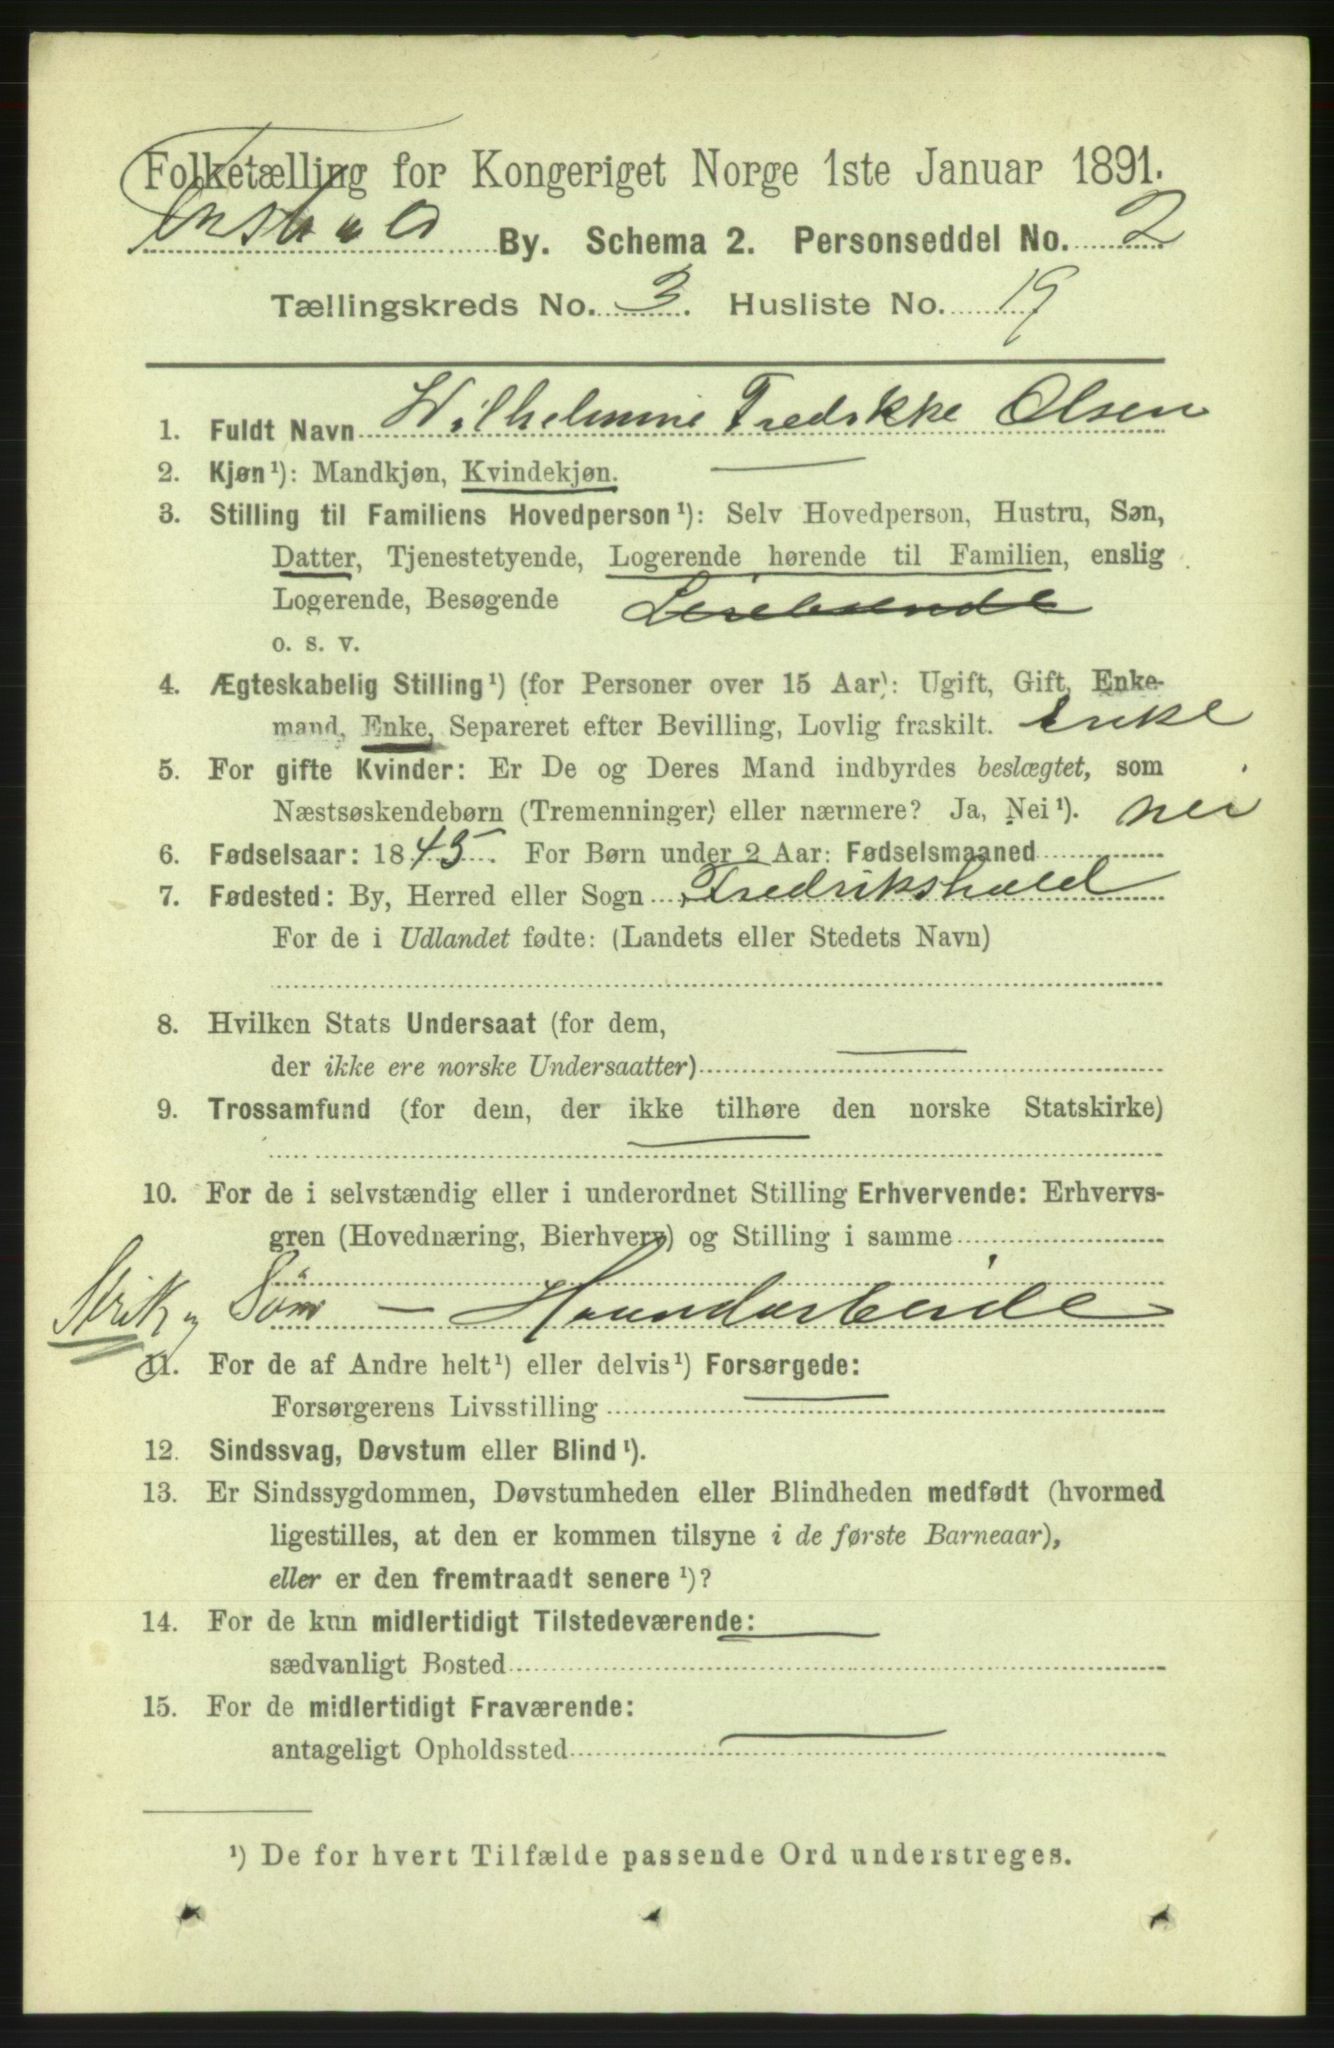 Folketælling for Kongeriget Norge 1ste Januar 1891.
By. Schema 2. Personseddel No. 2
Tællingskreds No. 3. Husliste No. 19
1. Fuldt Navn Wilhelmine Fredrikke Olsen
2. Kjøn¹): Mandkjøn, Kvindekjøn.
3. Stilling til Familiens Hovedperson¹): Selv Hovedperson, Hustru, Søn,
Datter, Tjenestetyende, Logerende hørende til Familien, enslig
Logerende, Besøgende
o. s. v.
4. Ægteskabelig Stilling¹) (for Personer over 15 Aar): Ugift, Gift, Enke-
mand, Enke, Separeret efter Bevilling, Lovlig fraskilt. Enke
5. For gifte Kvinder: Er De og Deres Mand indbyrdes beslægtet, som
Næstsøskendebørn (Tremenninger) eller nærmere? Ja, Nei¹). nei
6. Fødselsaar: 1845. For Børn under 2 Aar: Fødselsmaaned
7. Fødested: By, Herred eller Sogn Fredrikshald
For de i Udlandet fødte: (Landets eller Stedets Navn)
8. Hvilken Stats Undersaat (for dem,
der ikke ere norske Undersaatter)
9. Trossamfund (for dem, der ikke tilhøre den norske Statskirke)
10. For de i selvstændig eller i underordnet Stilling Erhvervende: Erhvervs-
gren (Hovednæring, Bierhverv) og Stilling i samme
Strik og Søm - Haandarbeide
11. For de af Andre helt¹) eller delvis¹) Forsørgede:
Forsørgerens Livsstilling
12. Sindssvag, Døvstum eller Blind¹).
13. Er Sindssygdommen, Døvstumheden eller Blindheden medfødt (hvormed
ligestilles, at den er kommen tilsyne i de første Barneaar),
eller er den fremtraadt senere¹)?
14. For de kun midlertidigt Tilstedeværende:
sædvanligt Bosted
15. For de midlertidigt Fraværende:
antageligt Opholdssted
¹) De for hvert Tilfælde passende Ord understreges.